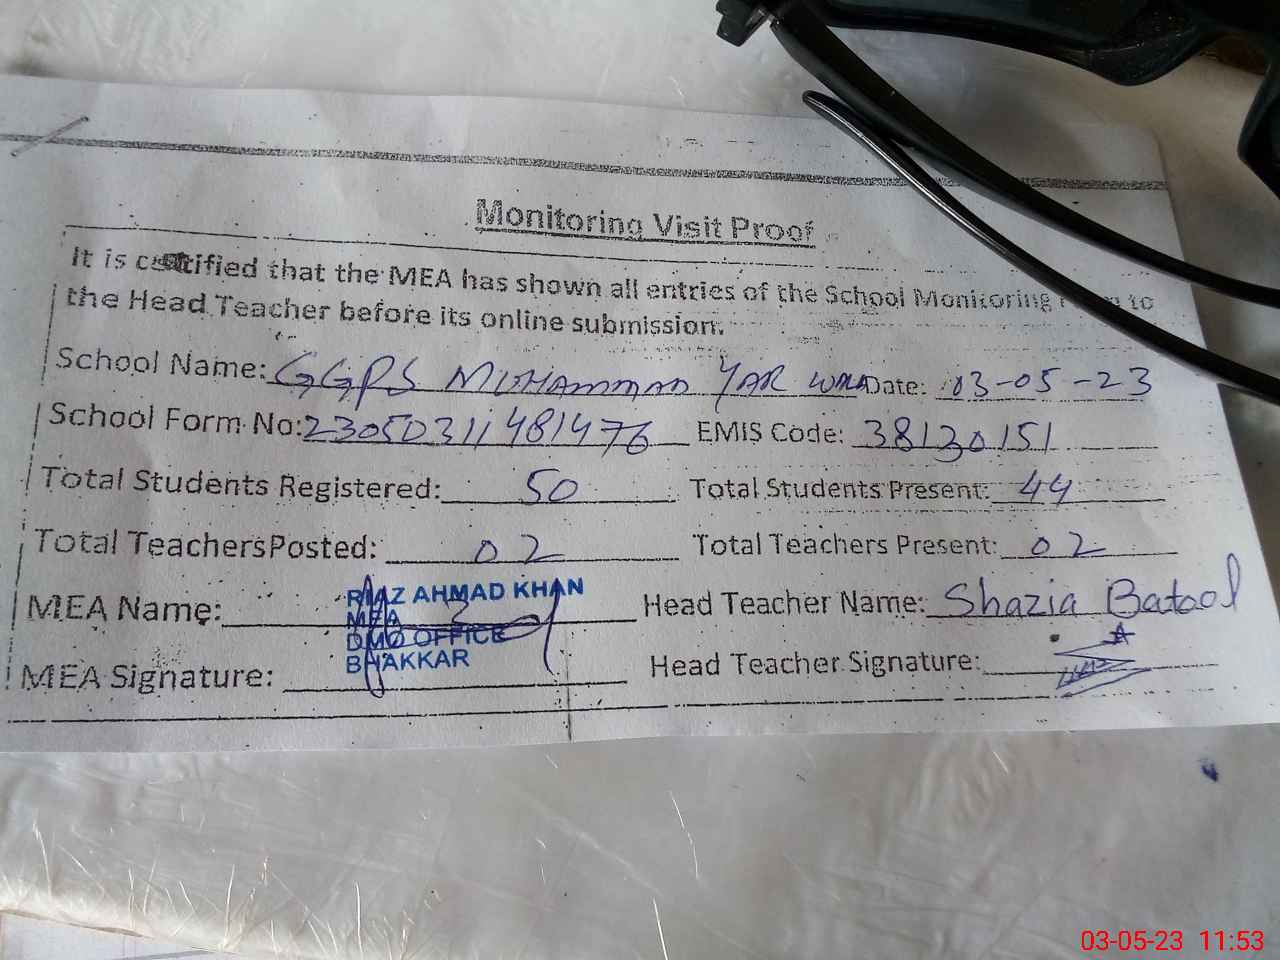 Monitoring Visit Proof
It is certified that the MEA has shown all entries of the School Monitoring to
the Head Teacher before its online submission.
School Name: GGPS MUHAMMAD YAR WALA Date: 03-05-23
School Form No: 23050311481476 EMIS Code: 38130151
Total Students Registered: 50 Total Students Present: 44
Total Teachers Posted: 02 Total Teachers Present: 02
MEA Name: RIAZ AHMAD KHAN Head Teacher Name: Shazia Batool
MEA
DMO OFFICE
BHAKKAR
MEA Signature: Head Teacher Signature:
03-05-23 11:53